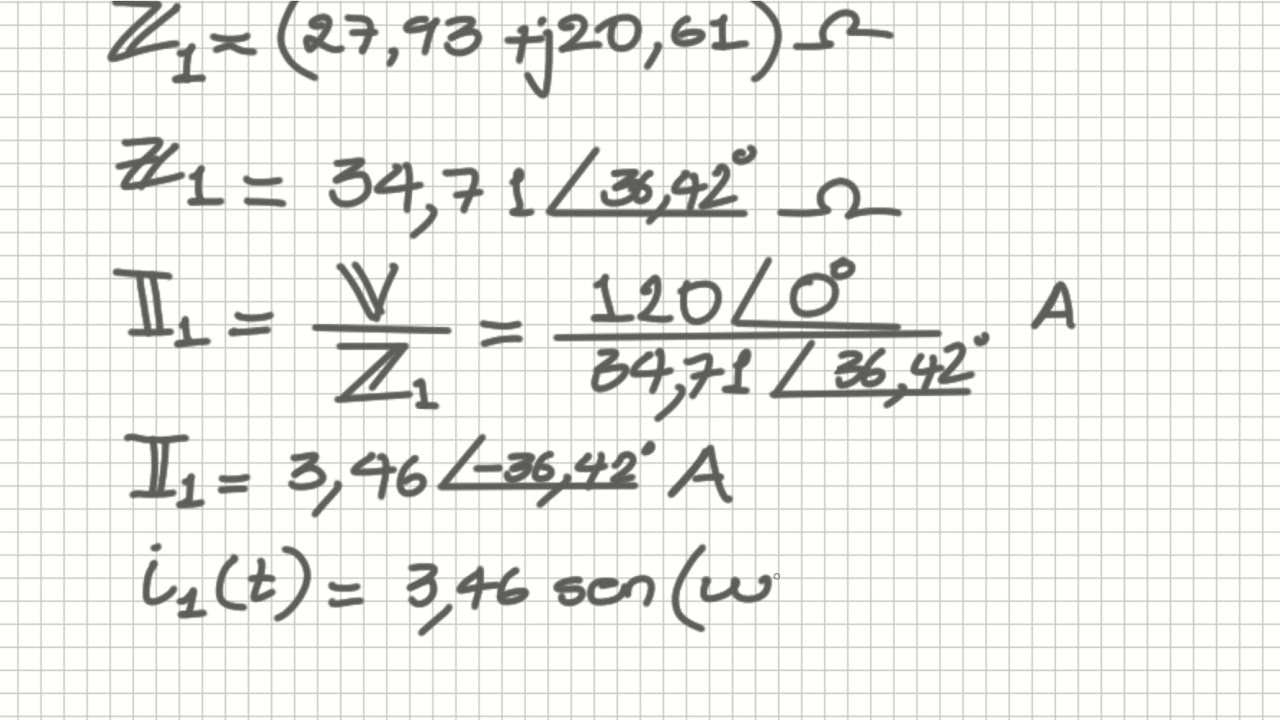 Z₁ ≈ (27,93 + j20,61) Ω
Z₁ = 34,71 ∠36,42° Ω
I₁ = V / Z₁ = 120∠0° / 34,71∠36,42° A
I₁ = 3,46 ∠-36,42° A
i₁(t) = 3,46 sen (ω